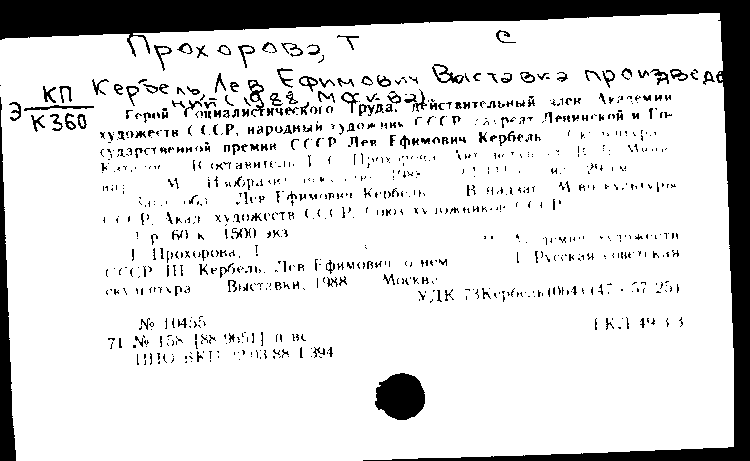 Прохорова, Т С
Кербель, Лев Ефимович Выставка произведе
ний (1988, Москва).
Э КП
К360
Герой Социалистического Труда, действительный член Академии
художеств СССР, народный художник СССР, лауреат Ленинской и Го-
сударственной премии СССР Лев Ефимович Кербель Скульптура
Каталог Составитель Т. С. Прохорова Авт.
М Изобразит. искусство 1988 29 см
Загл. обл. Лев Ефимович Кербель В надзаг. М-во культуры
СССР, Акад. художеств СССР, Союз художников СССР
1 р. 60 к. 1500 экз.
I. Прохорова, Т Академия художеств
СССР III. Кербель, Лев Ефимович о нем 1. Русская советская
скульптура Выставки, 1988 Москва
УДК 73Кербель(064)(47+57-25)
№ 10455
71 № 158 [88-9651] п вс ГКЛ 49.3.3
НПО ВКП 22.03.88 1.394